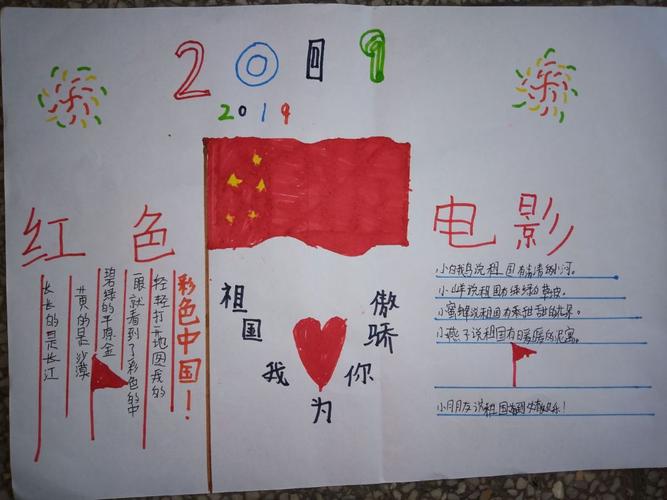 2019
2019
红色
电影
彩色中国！
轻轻打开地图我的
一眼就看到了彩色的中
碧绿的平原金
黄的是沙漠
长长的是长江
祖国
我为你
傲骄
小白鹅说祖国有清清的小河。
小羊说祖国有绿绿的草皮。
小蜜蜂说祖国有香甜甜的花果。
小燕子说祖国有暖暖的泥窝。
小朋友说祖国